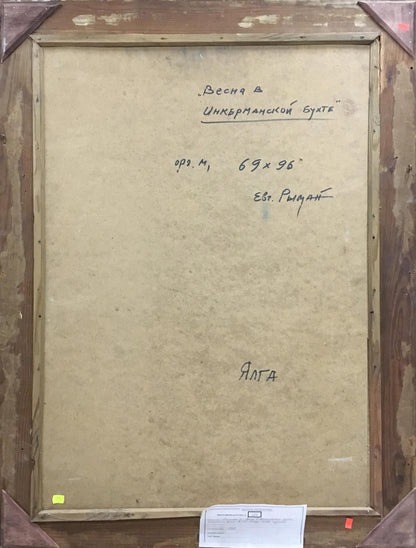 „Весна в
Инкерманской бухте"
орг. м, 69 х 96
Евг. Рыман
Ялта